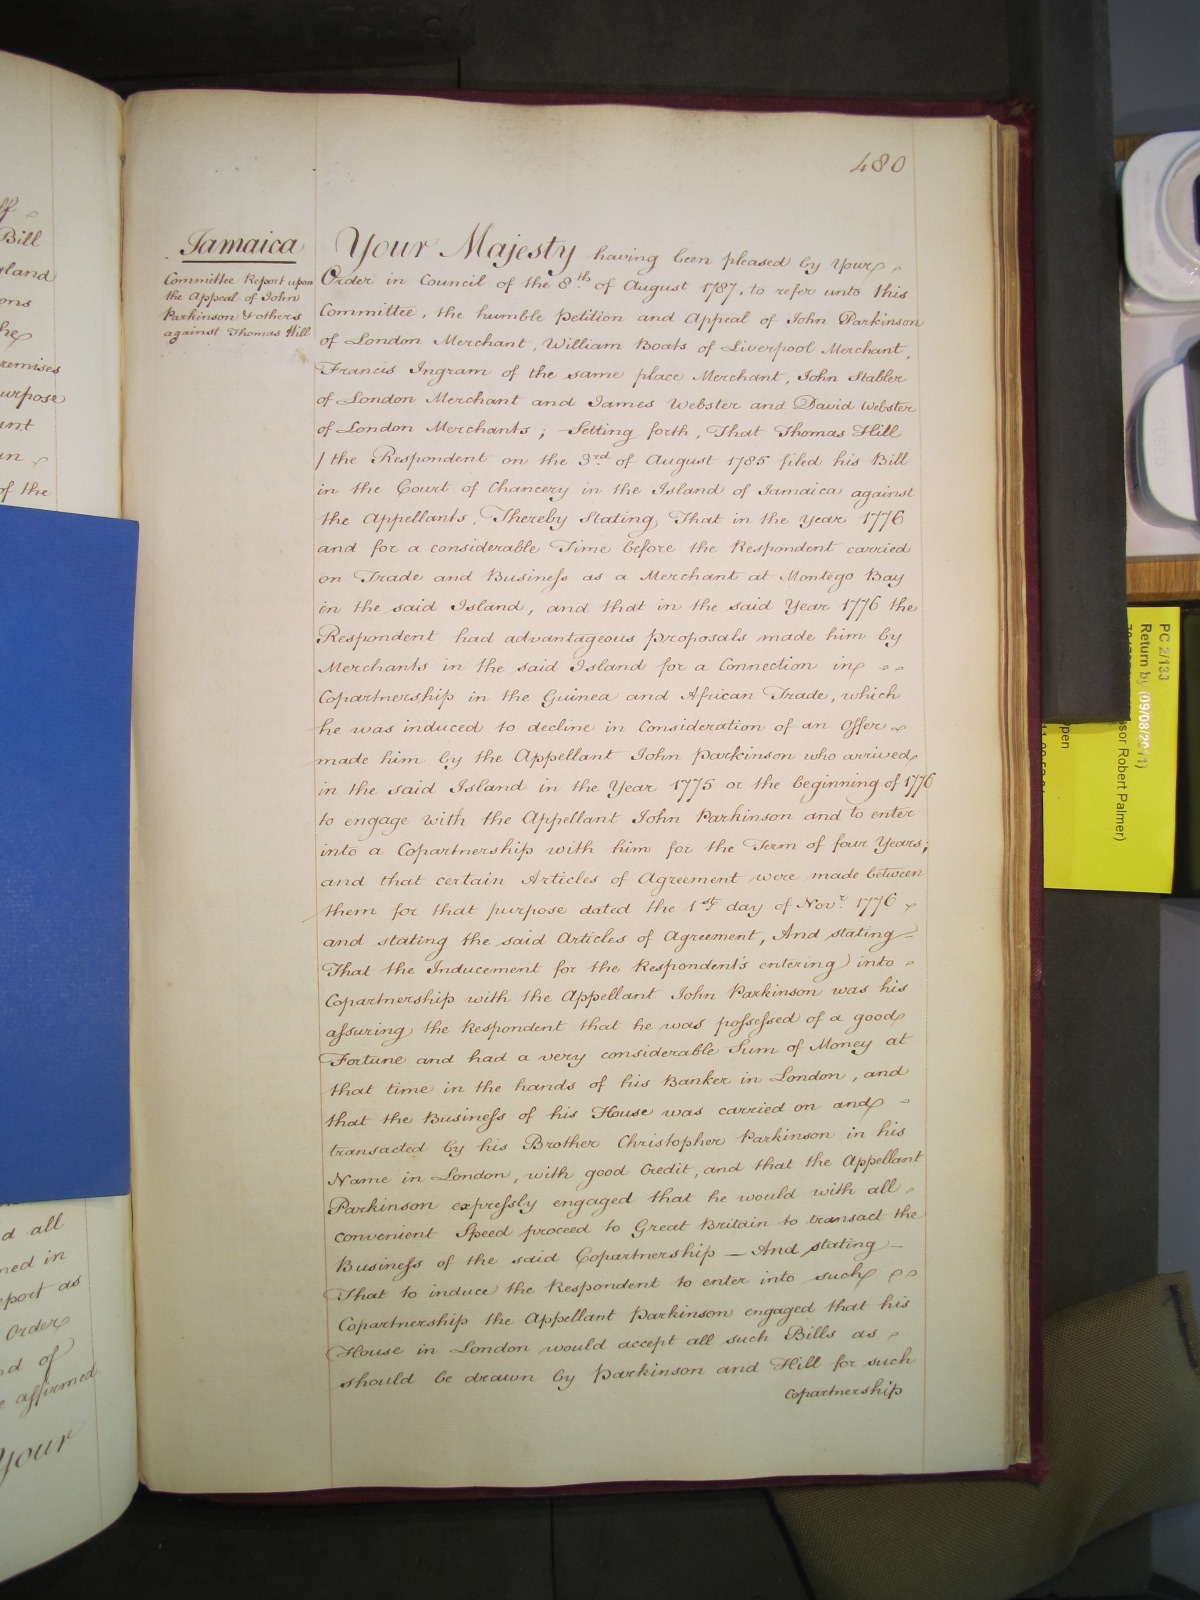 480
Jamaica
Committee Report upon
the Appeal of John
Parkinson & others
against Thomas Hill
Your Majesty having been pleased by Your
Order in Council of the 8th of August 1787, to refer unto this
Committee, the humble Petition and Appeal of John Parkinson
of London Merchant, William Boats of Liverpool Merchant,
Francis Ingram of the same place Merchant, John Stabler
of London Merchant and James Webster and David Webster
of London Merchants; Setting forth, That Thomas Hill
/ the Respondent on the 3rd of August 1785 filed his Bill
in the Court of Chancery in the Island of Jamaica against
the Appellants, Thereby Stating, That in the Year 1776
and for a considerable Time before the Respondent carried
on Trade and Business as a Merchant at Montego Bay
in the said Island, and that in the said Year 1776 the
Respondent had advantageous Proposals made him by
Merchants in the said Island for a Connection in
Copartnership in the Guinea and African Trade, which
he was induced to decline in Consideration of an Offer
made him by the Appellant John Parkinson who arrived
in the said Island in the Year 1775 or the beginning of 1776
to engage with the Appellant John Parkinson and to enter
into a Copartnership with him for the Term of four Years;
and that certain Articles of Agreement were made between
them for that purpose dated the 1st day of Novr. 1776
and stating the said Articles of Agreement, And stating
That the Inducement for the Respondent's entering into
Copartnership with the Appellant John Parkinson was his
assuring the Respondent that he was possessed of a good
Fortune and had a very considerable Sum of Money at
that time in the hands of his Banker in London, and
that the Business of his House was carried on and
transacted by his Brother Christopher Parkinson in his
Name in London, with good Credit, and that the Appellant
Parkinson expressly engaged that he would with all
convenient Speed proceed to Great Britain to transact the
Business of the said Copartnership — And stating —
That to induce the Respondent to enter into such
Copartnership the Appellant Parkinson engaged that his
House in London would accept all such Bills as
should be drawn by Parkinson and Hill for such
Copartnership
Bill
of the
d all
Order
affirmed
Your
PC 2/133
Return by (09/08/2011)
Robert Palmer)